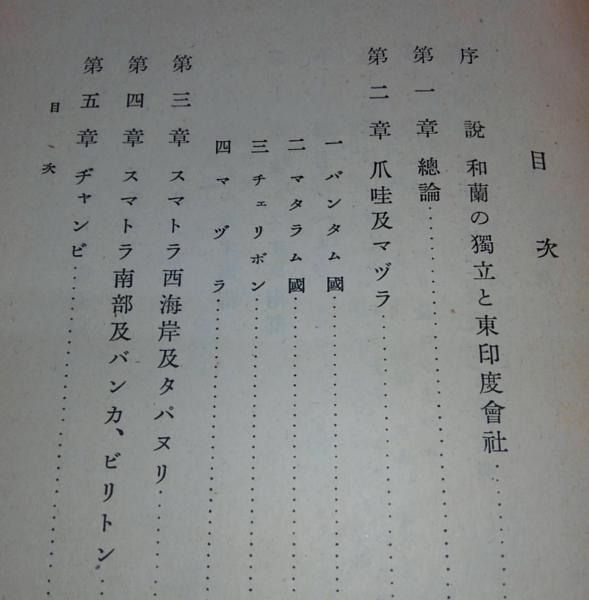 目次
序說 和蘭の獨立と東印度會社
第一章 總論
第二章 爪哇及マヅラ
一 バンタム國
二 マタラム國
三 チェリボン
四 マヅラ
第三章 スマトラ西海岸及タパヌリ
第四章 スマトラ南部及バンカ、ビリトン
第五章 ヂャンビ
目次